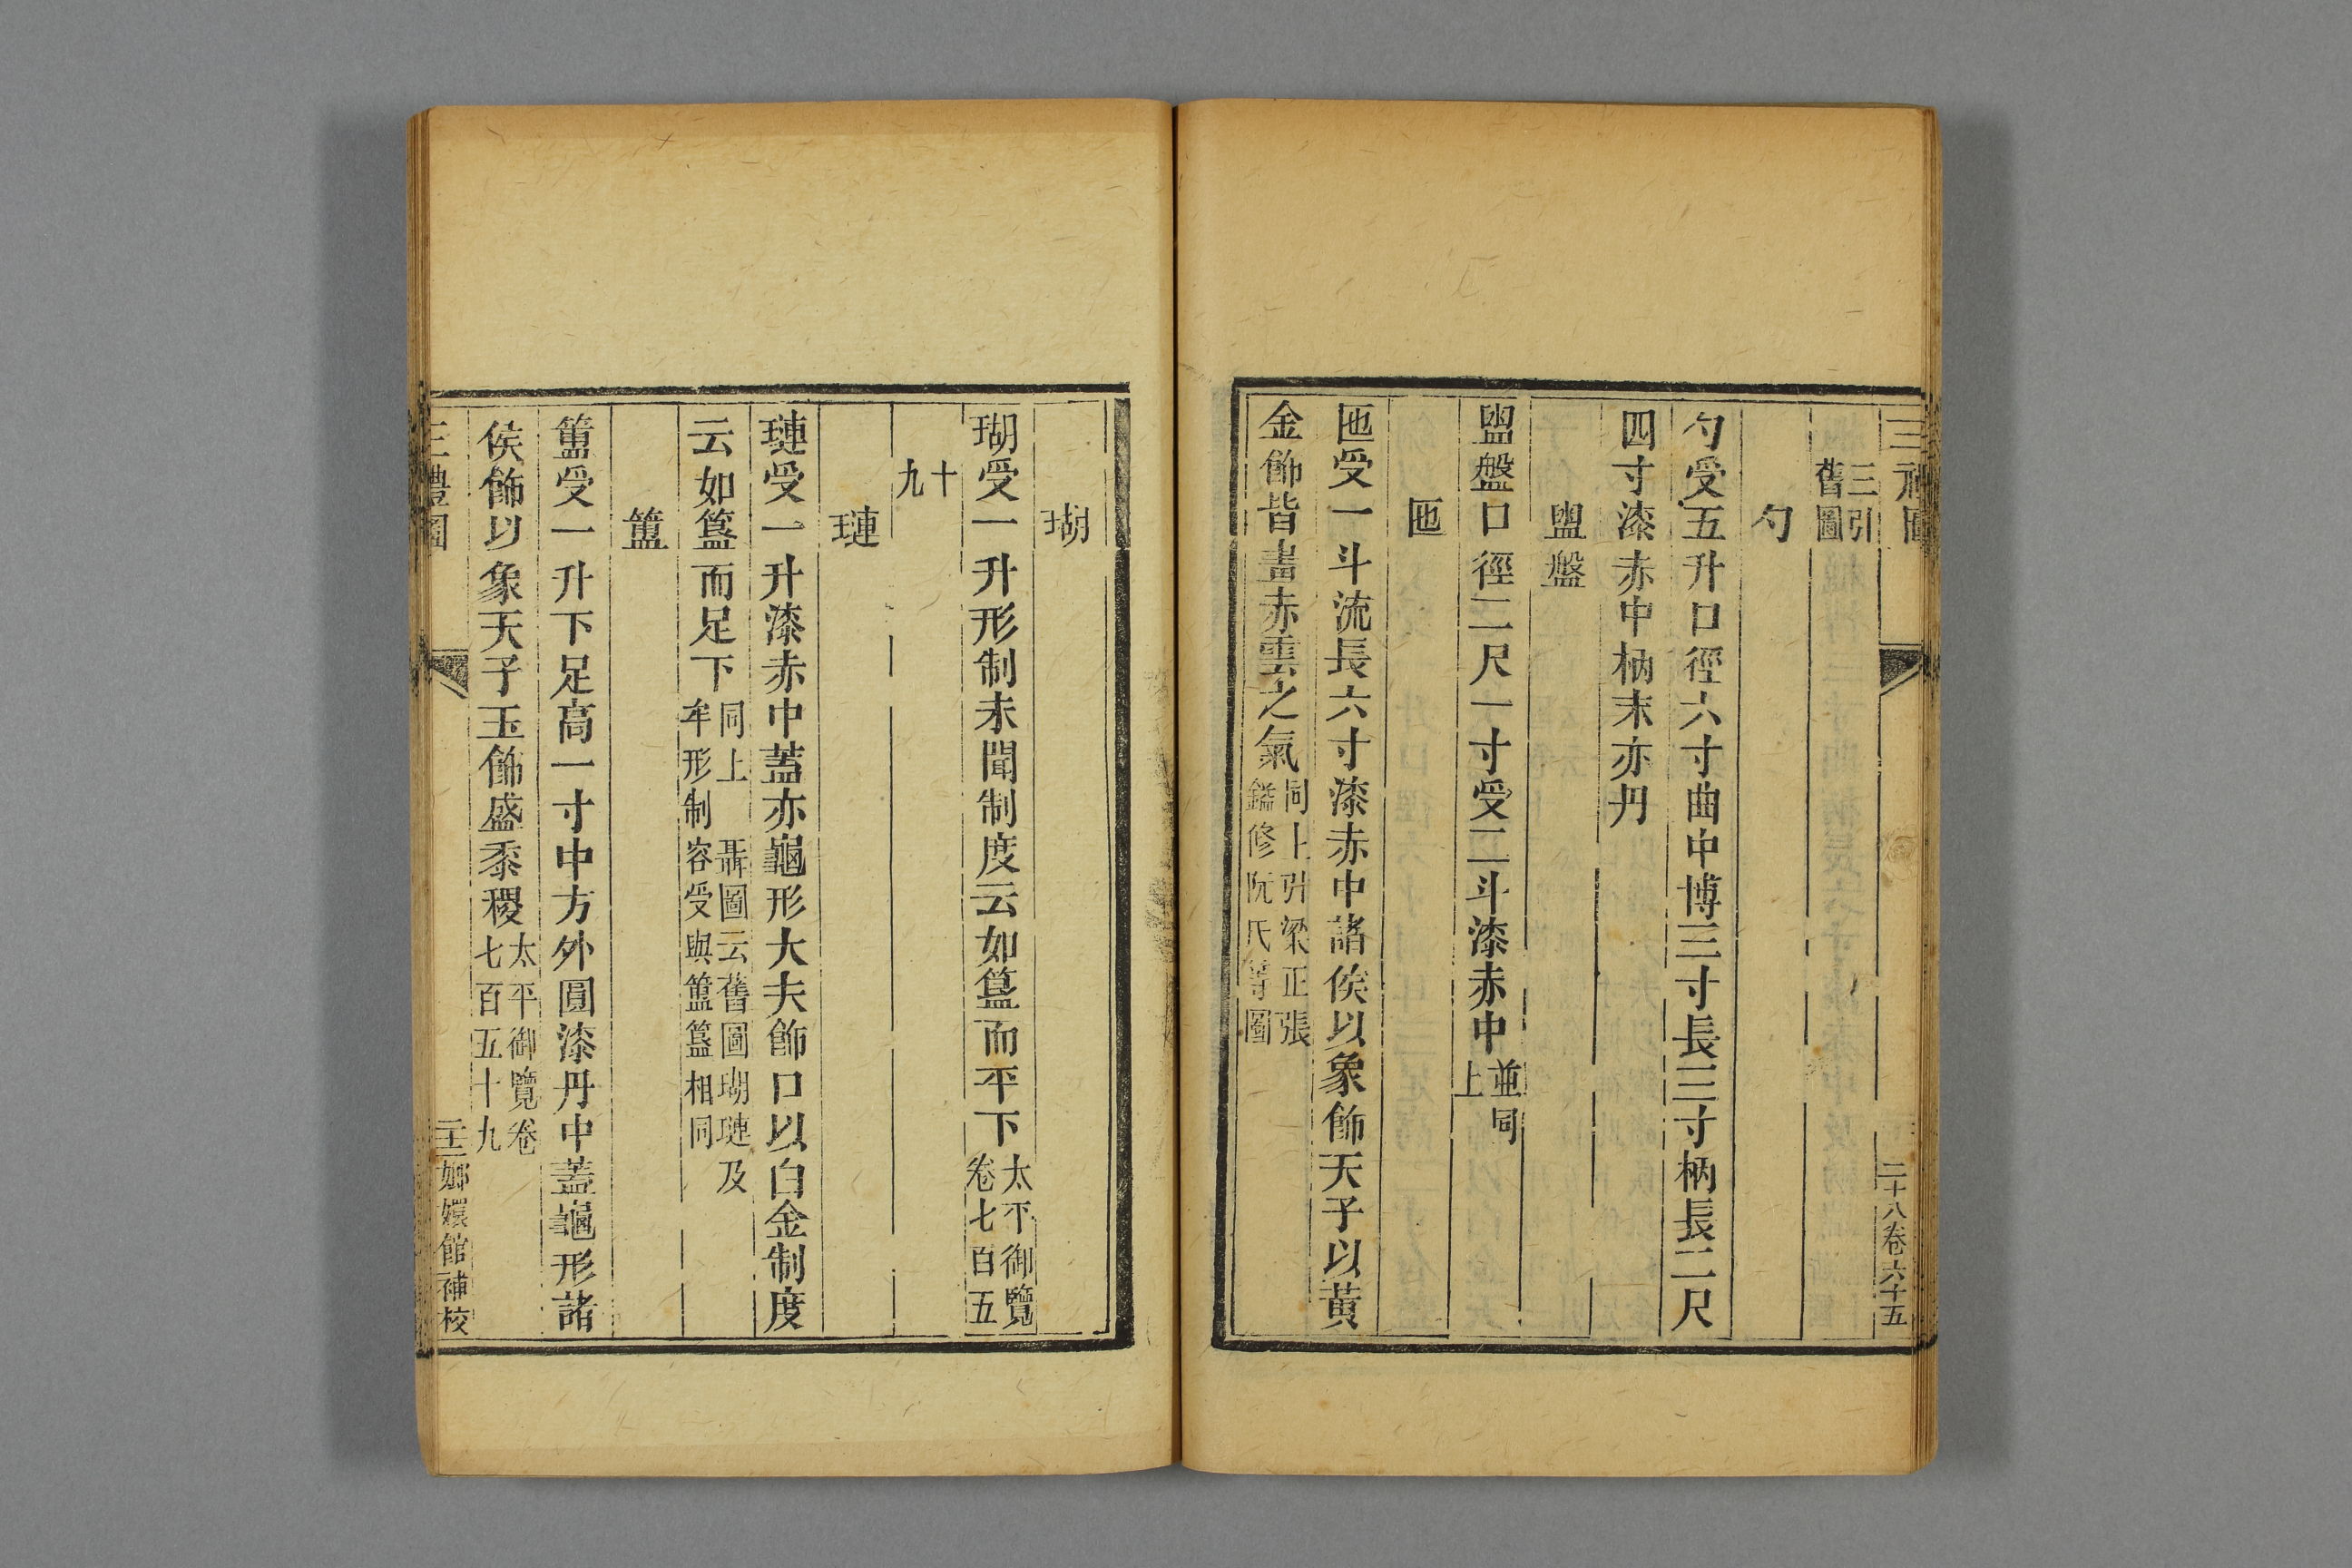 三禮圖
二十八卷六十五
三引
舊圖
勺
勺受五升口徑六寸曲中博三寸長三寸柄長二尺
四寸漆赤中柄末亦丹
盥盤
盥盤口徑二尺一寸受二斗漆赤中並同
上
匜
匜受一斗流長六寸漆赤中諸侯以象飾天子以黃
金飾皆畫赤雲之氣同上引梁正張
鎰修阮氏等圖
瑚
瑚受一升形制未聞制度云如簋而平下太平御覽
卷七百五
十
九
璉
璉受一升漆赤中蓋亦龜形大夫飾口以白金制度
云如簋而足下同上 聶圖云舊圖瑚璉及
牟形制容受與簠簋相同
簠
簠受一升下足高一寸中方外圓漆丹中蓋龜形諸
侯飾以象天子玉飾盛黍稷太平御覽卷
七百五十九
三禮圖
嫏嬛館補校